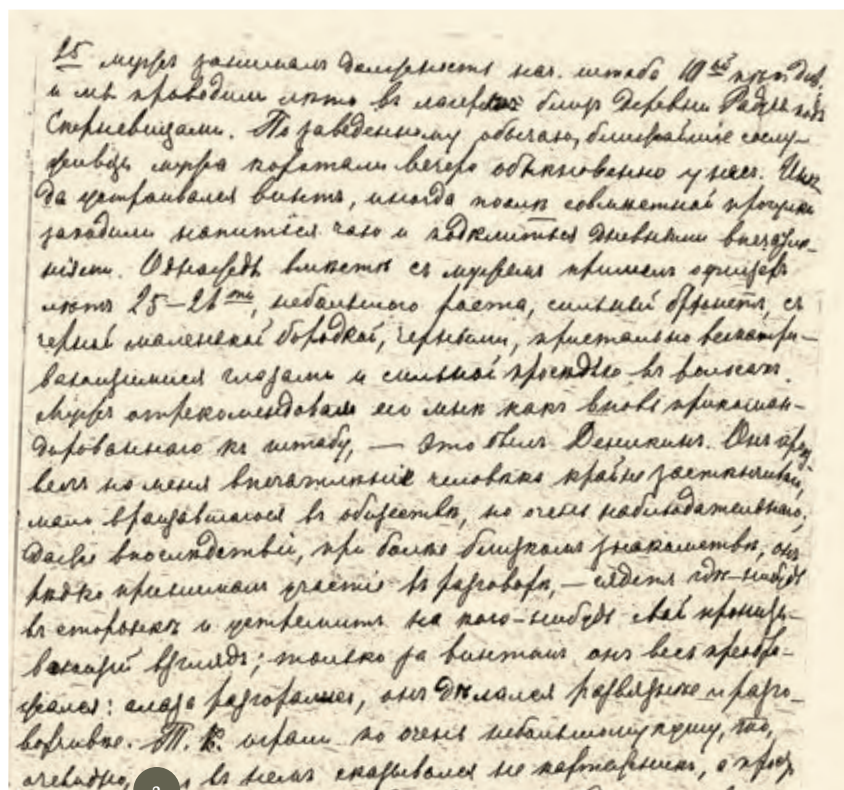 25 мужъ занималъ должность нач. штаба 10ой пѣх. див.
и мы проводили лѣто въ лагеряхъ близъ деревни подъ
Скерневицами. По заведенному обычаю, ближайшіе сослу-
живцы мужа коротали вечера обыкновенно у насъ. Иног-
да устраивался винтъ, иногда послѣ совмѣстной прогулки
заходили напиться чаю и подѣлиться дневными впечатлѣ-
ніями. Однажды вмѣстѣ съ мужемъ пришелъ офицеръ
лѣтъ 25–26ти, небольшого роста, сильный брюнетъ, съ
черной маленькой бородкой, черными, пристально всматри-
вающимися глазами и сильной просѣдью въ волосахъ.
Мужъ отрекомендовалъ его мнѣ какъ вновь прикоман-
дированнаго къ штабу, — это былъ Деникинъ. Онъ произ-
велъ на меня впечатлѣніе человѣка крайне застѣнчиваго,
мало вращавшагося въ обществѣ, но очень наблюдательнаго,
даже впослѣдствіи, при болѣе близкомъ знакомствѣ, онъ
рѣдко принималъ участіе въ разговорѣ, — сядетъ гдѣ-нибудь
въ сторонкѣ и устремитъ на кого-нибудь свой пронизы-
вающій взглядъ; только за винтомъ онъ весь преобра-
жался: глаза разгорались, онъ дѣлался развязнѣе и разго-
ворчивѣе. Т. к. играли по очень небольшому кушу, то,
очевидно, въ немъ сказывался не картежникъ, а прост